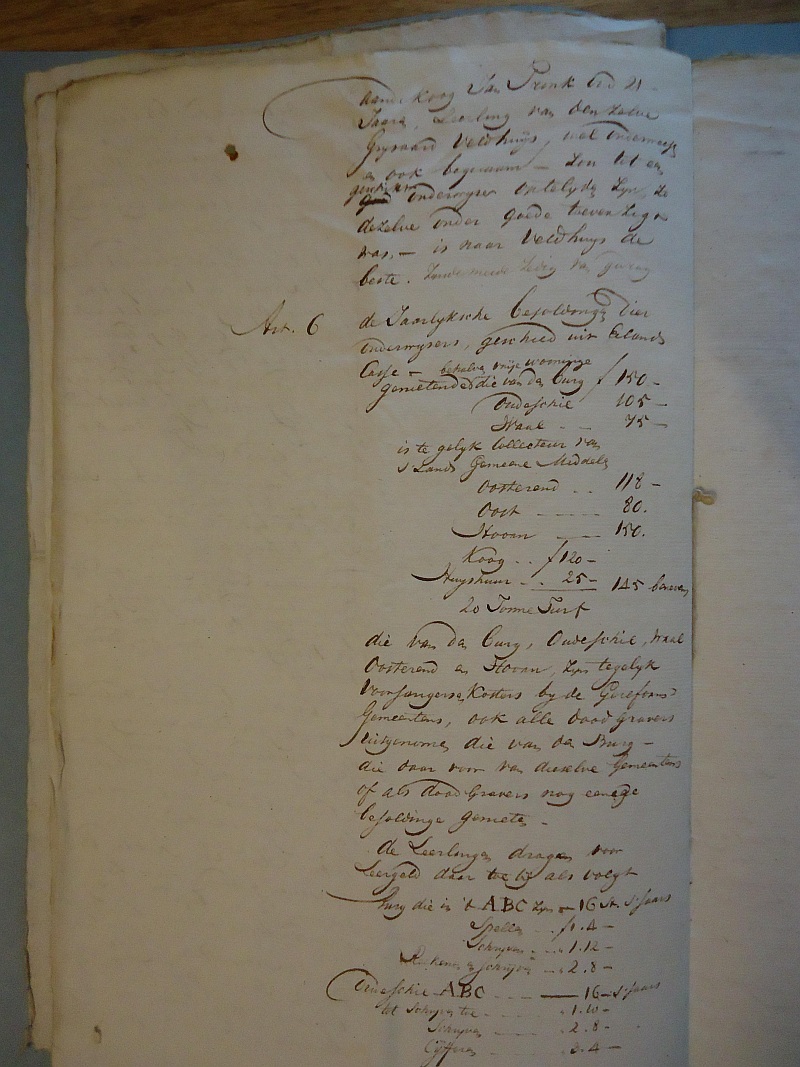 aan de Koog Jan Pronk oud 21
Jaaren, Leerling van den zelve
Gijsaard Veldhuijs, wel onderweese
en ook bequaam – zou tot een
geschikte onderwyser optelyde zyn, zo
dezelve onder goede
was, – is naar Veldhuijs de
beste.
Art. 6 de Jaarlyksche besoldinge dier
onderwysers, geschied uit Eilands
Casse – behalve vrije wooninge
genietende die van den Burg f 150 –
Oudeschie 105 –
Waal – – 75 –
is te gelyk Collecteur van
s'Lands Gemeene Middele
Oosterend . . 118 –
Oost – – – – 80.
Hooren – – – 150.
Koog . . f 120 –
Huijshuur – . 25 – 145 benevens
20 Tonne Turf
die van den Burg, Oudeschie, Waal
Oosterend en Hooren, zyn tegelyk
Voorsangers en Kosters by de Gereform:
Gemeentens, ook alle Dood Gravers
uitgenomen die van den Burg –
die daar voor van dieselve Gemeentens
of als dood Gravers nog eenige
besoldinge geniete –
de Leerlingen dragen voor
Leergeld daar toe by als volgt
Burg die in 't ABC zyn – 16 St. s'Jaars
Spellen . . f 1.4 –
Schryven . . . 1.12 –
Reekenen en schryven – . 2.8 –
Oudeschie ABC – – – – 16 – s'Jaars
tot Schryven toe – . 1.10 –
Schryven – – – . 2.8 –
Cyfferen – – . 3.4 –